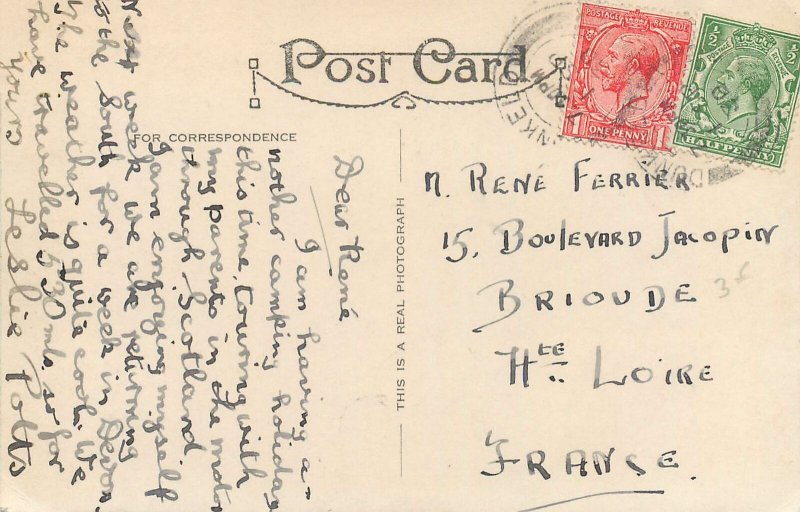 Post Card
FOR CORRESPONDENCE
THIS IS A REAL PHOTOGRAPH
POSTAGE REVENUE
1 ONE PENNY 1
½ POSTAGE REVENUE ½
HALFPENNY
Dear René
I am having a-
nother camping holiday
this time, touring with
my parents in the motor
through Scotland
I am enjoying myself
Next week we are returning
to the South for a week in Devon.
The weather is quite cool. We
have travelled 530 mls. so far
Yours
Leslie Potts
M. RENÉ FERRIER
15, BOULEVARD JACOPIN
BRIOUDE
HTE LOIRE
FRANCE.